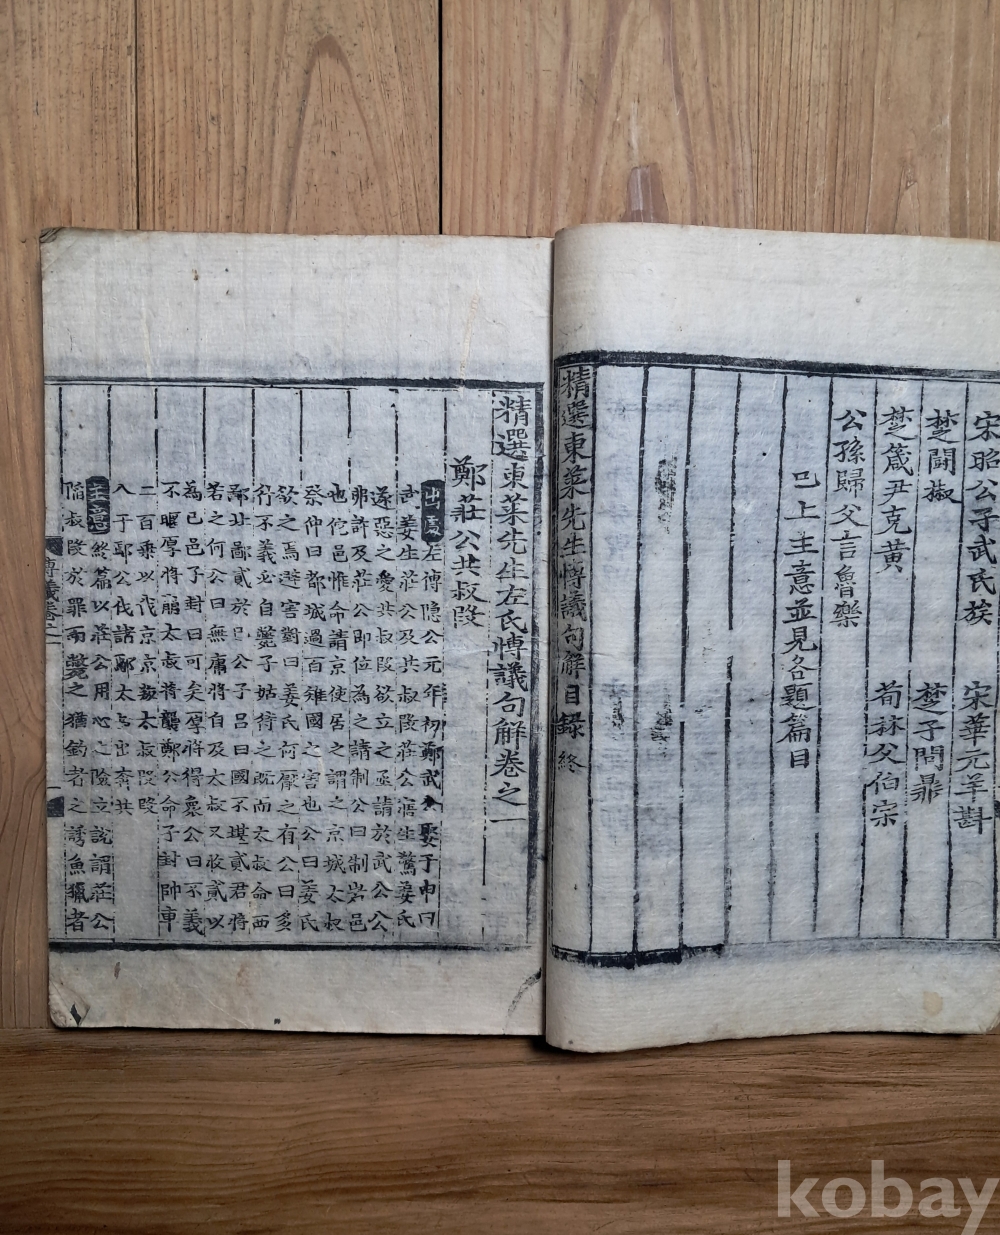 宋昭公子武氏族 宋華元羊斟
楚鬪椒 楚子問鼎
楚箴尹克黃 荀林父伯宗
公孫歸父言魯樂
已上主意並見各題篇目
精選東萊先生博議句解目錄 終
精選東萊先生左氏博議句解卷之一
鄭莊公共叔段
出處 左傳隱公元年初鄭武公娶于申曰
武姜生莊公及共叔段莊公寤生驚姜氏
遂惡之愛共叔段欲立之亟請於武公公
弗許及莊公即位為之請制公曰制岩邑
也佗邑惟命請京使居之謂之京城太叔
祭仲曰都城過百雉國之害也公曰姜氏
欲之焉避害對曰姜氏何厭之有公曰多
行不義必自斃子姑待之既而太叔命西
鄙北鄙貳於己公子呂曰國不堪貳君將
若之何公曰無庸將自及太叔又收貳以
為己邑子封曰可矣厚將得衆公曰不義
不暱厚將崩太叔將襲鄭公命子封帥車
二百乘以伐京京叛太叔段段
入于鄢公伐諸鄢太叔出奔共
主意 終篇以莊公用心之險立說謂莊公
陷叔段於罪而斃之猶釣者之誘魚獵者
博議卷之一
kobay